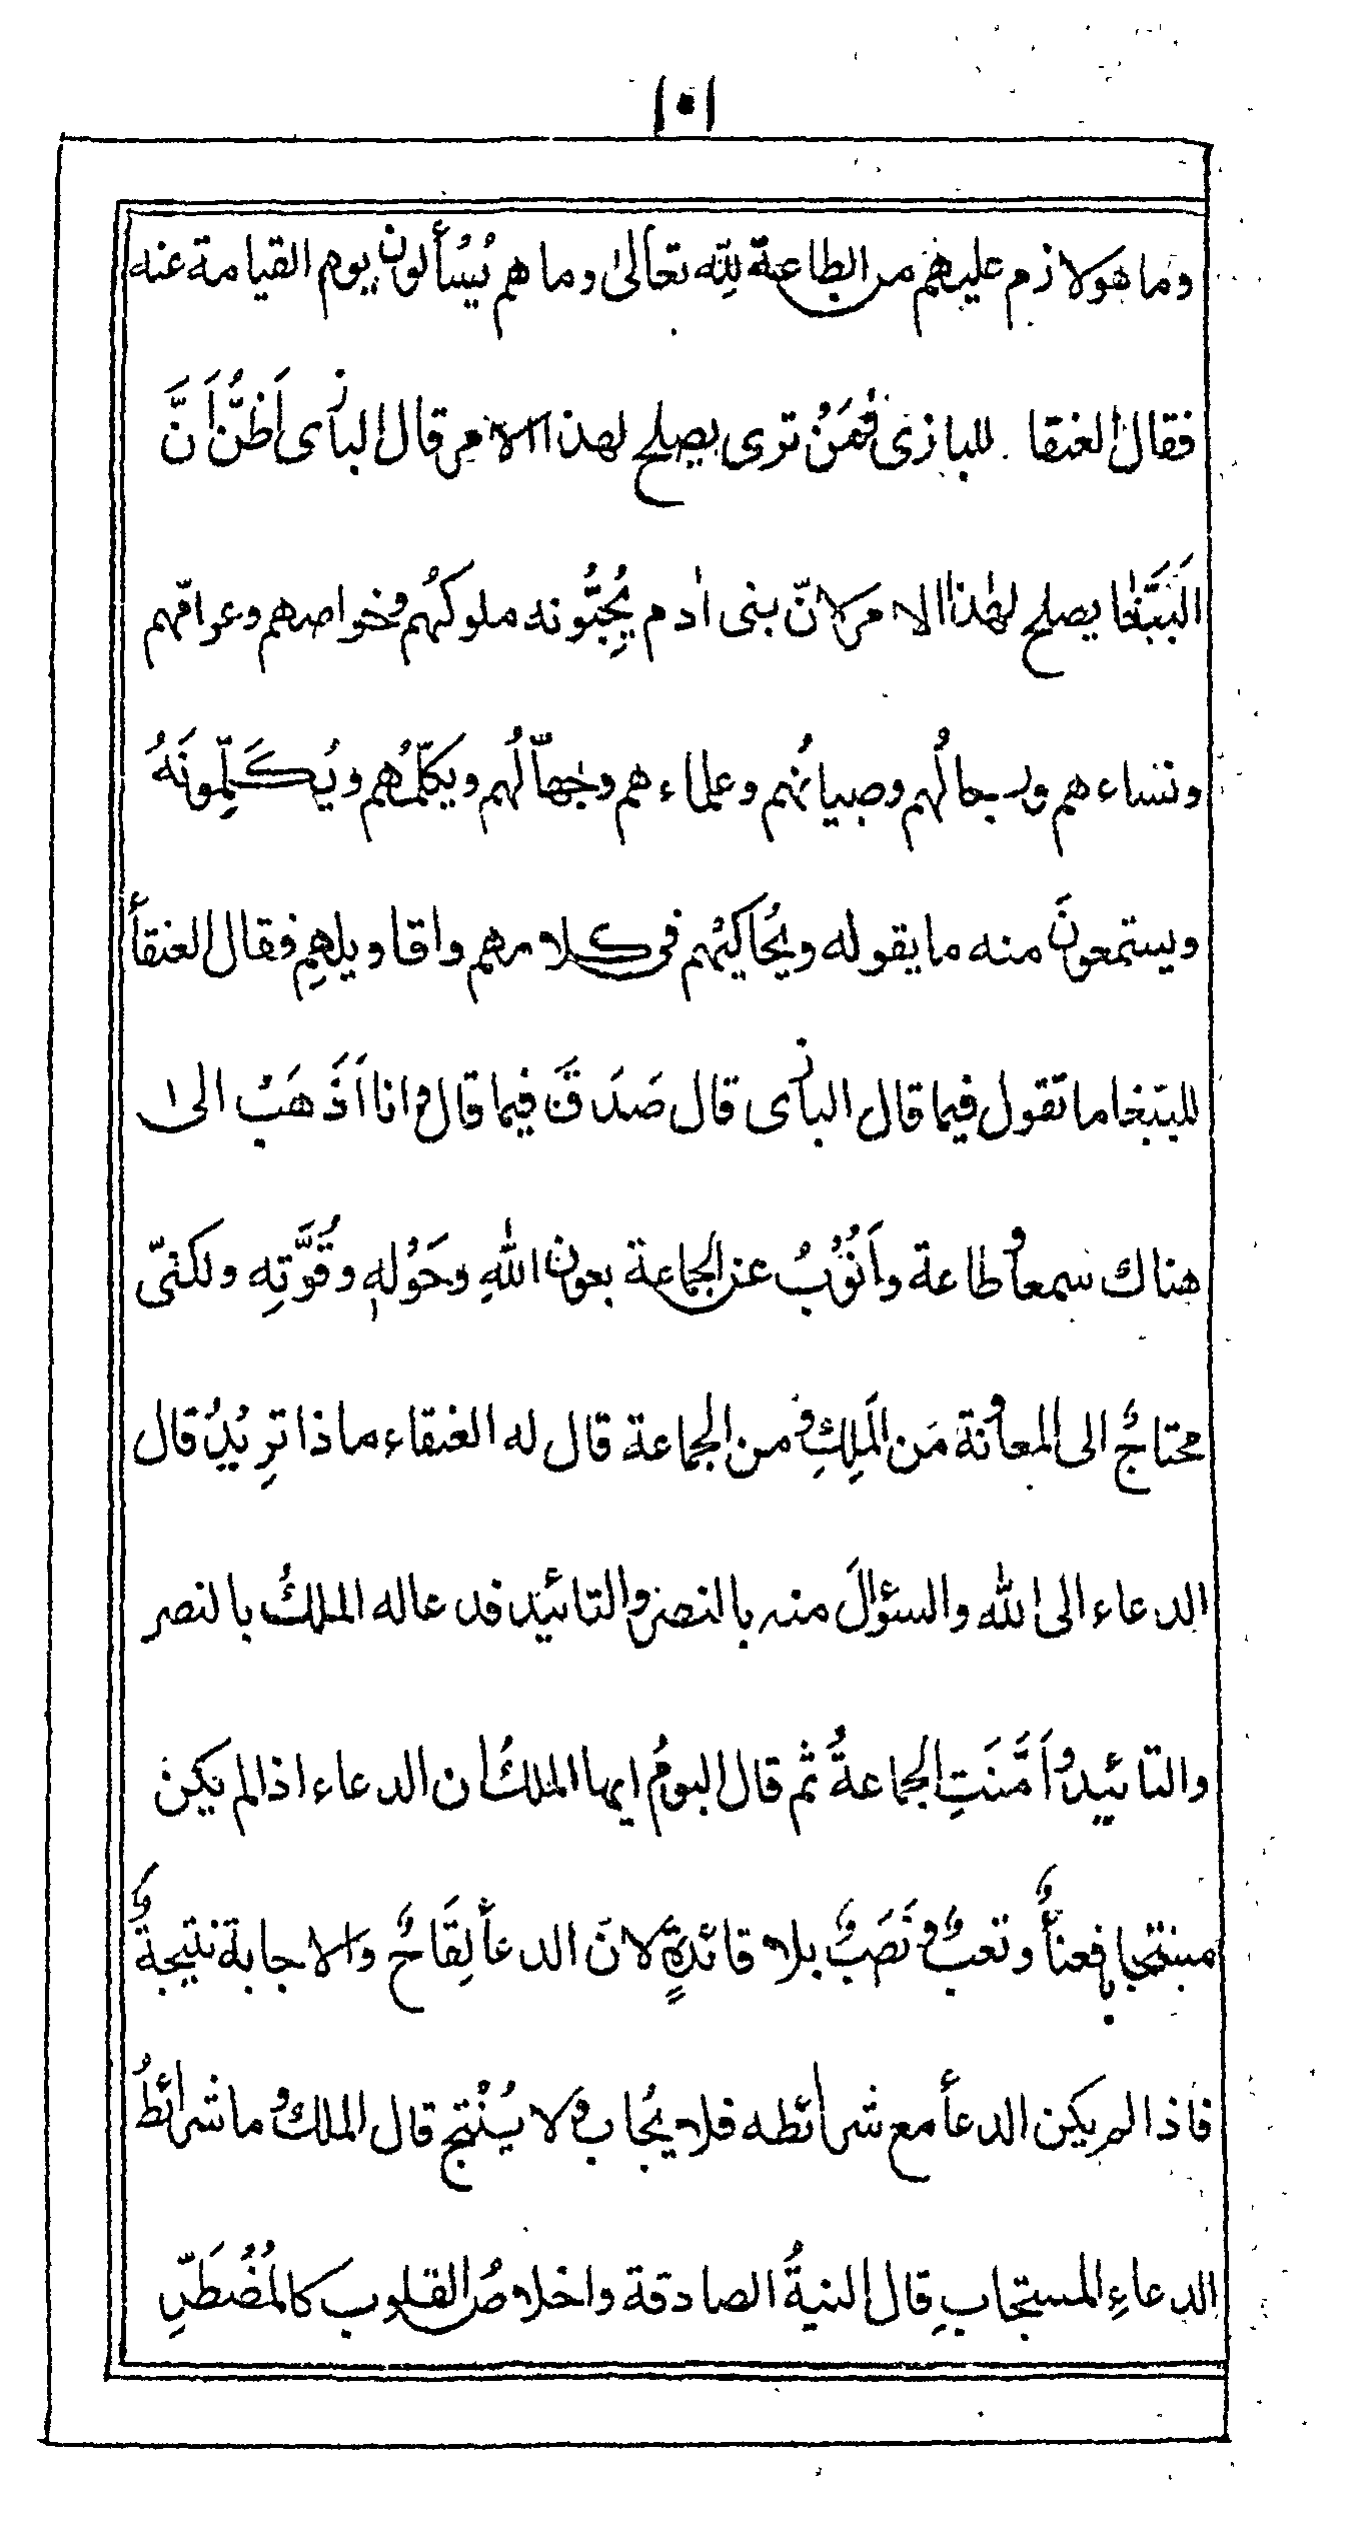 ١٠١
وما هو لازم عليهم من الطاعة لِلّه تعالىٰ وما هم يُسْأَلون يوم القيامة عنه
فقال العنقا للبازى فَمَنْ ترى يصلح لهذا الامر قال البازى اَظُنُّ اَنَّ
الَببَّغا يصلح لهٰذا الامر لانّ بنى اٰدم يُحِبُّونه ملوكهُم وخواصهم وعوامّهم
ونساءهم ورجالُهم وصبيانُهم وعلماءهم وجهّالُهم ويكلّمُهم ويُكَلِّمونَهُ
ويستمعونَ منه ما يقوله ويُحاكيْهم فى كلامهم واقاويلهِم فقال العنقأ
للببغا ما تقول فيما قال البازى قال صَدَقَ فيما قال وانا اَذْهَبُ الى
هناك سمعاً وطاعة واَنُوْبُ عن الجماعة بعون اللهِ وحَوْلِه وقُوَّتِه ولكنّى
محتاجٌ الى المعاونة مَن الَملِكِ ومن الجماعة قال له العنقاء ماذا تُرِيْدُ قال
الدعاء الى الله والسؤالَ منه بالنصر والتائيد فدعا له الملكُ بالنصر
والتائيد واَمَّنَتِ الجماعةُ ثم قال البومُ ايها الملكُ ان الدعاء اذا لم يكن
مستجابا فعنأٌ وتعبٌ ونَصَبٌ بلا فائدةٍ لانَ الدعأ لِقَاحٌ والاجابة نتيجةٌ
فاذا لم يكن الدعأ مع شرائطه فلا يُجاب ولا يُنْتج قال الملكُ وما شرائطُ
الدعاءِ المستجابِ قال النيةُ الصادقة واخلاصُ القلوب كالمُضْطَرِّ